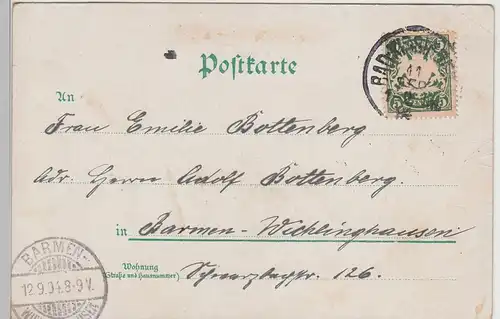 Postkarte
An
Frau Emilie Bottenberg
Adr. Herrn Adolf Bottenberg.
in Barmen-Wichlinghausen
Wohnung
(Straße und Hausnummer)
Schwarzbachstr. 126.
BARMEN-
12.9.04.8-9V.